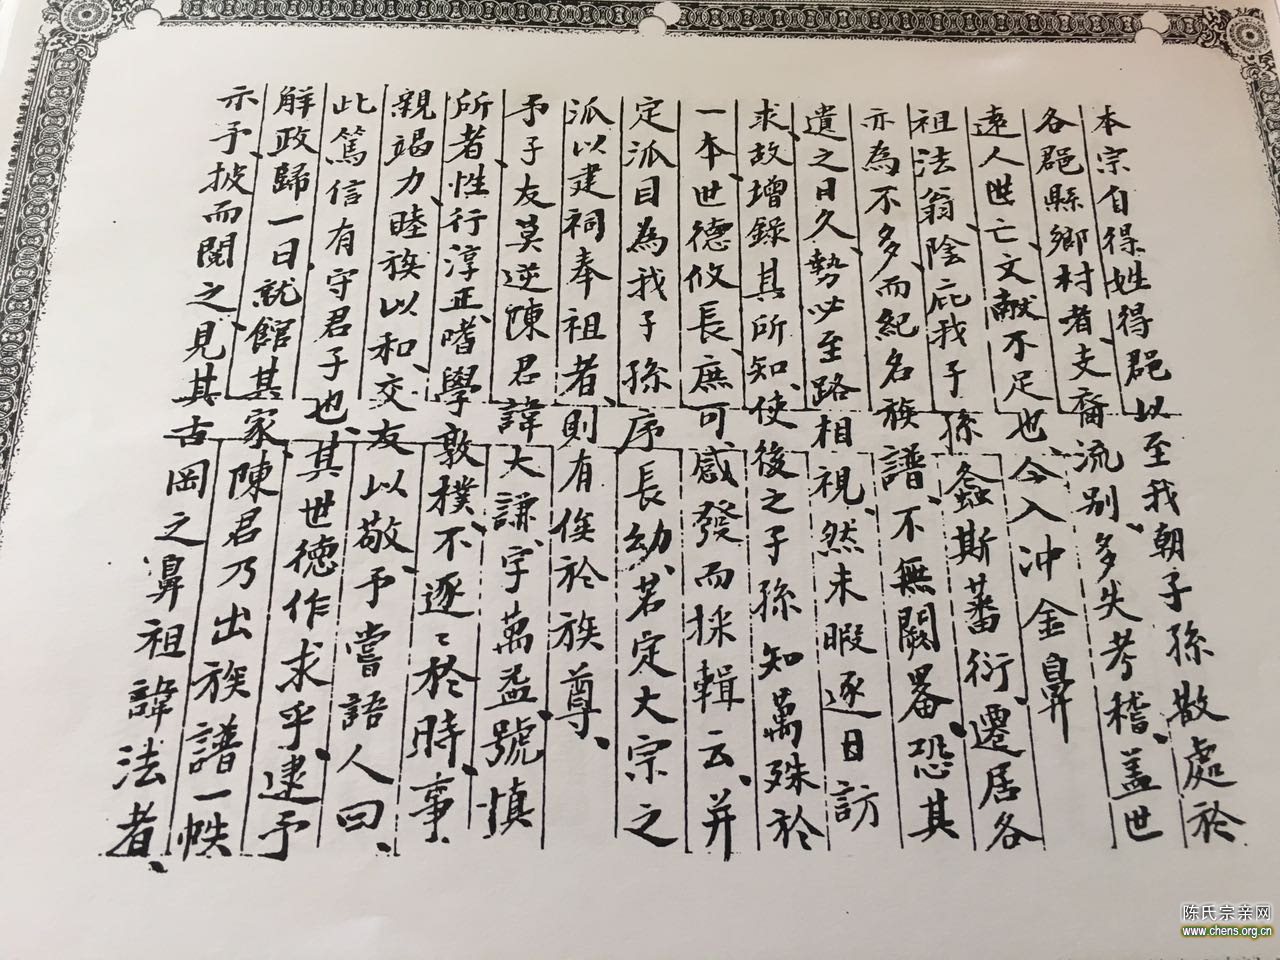 本宗自得姓得郡以至我朝子孫散處於
各郡縣鄉村者、支裔流別、多失考稽、盖世
遠人世亡、文献不足也、今入冲金鼻
祖法翁、陰庇我子孫螽斯蕃衍、遷居各
亦為不多、而紀名族譜、不無闕畧、恐其
遺之日久、勢必至路相視、然未暇逐日訪
求、故增錄其所知、使後之子孫知萬殊於
一本、世德攸長、庶可感發而採輯云、并
定派目為我子孫序長幼、若定大宗之
派以建祠奉祖者、則有俟於族尊、
予子友莫逆陳君諱大謙、字萬益、號慎
所者、性行淳正、嗜學敦樸、不逐〻於時、事
親竭力、睦族以和、交友以敬、予嘗語人曰、
此篤信有守君子也、其世德作求乎、逮予
解政歸一日、就館其家、陳君乃出族譜一帙
示予、披而閱之、見其古岡之鼻祖諱法者、
陈氏宗亲网
www.chens.org.cn